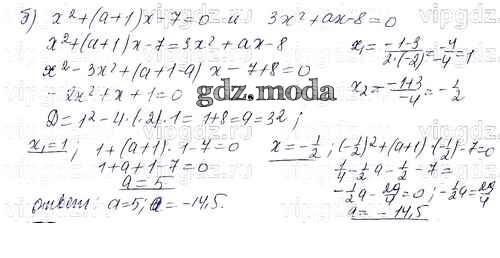 б) x²+(a+1)x-7=0 и 3x²+ax-8=0
x²+(a+1)x-7=3x²+ax-8
x²-3x²+(a+1-a)x-7+8=0
-2x²+x+1=0
D=1²-4·(-2)·1=1+8=9=3²;
x₁=(-1-3)/(2·(-2))=-4/-4=1
x₂=(-1+3)/-4=-1/2
gdz.moda
x₁=1; 1+(a+1)·1-7=0
1+a+1-7=0
a=5
x=-1/2; (-1/2)²+(a+1)·(-1/2)-7=0
1/4-1/2a-1/2-7=
-1/2a-29/4=0; -1/2a=29/4
a=-14,5
ответ: a=5; a=-14,5.